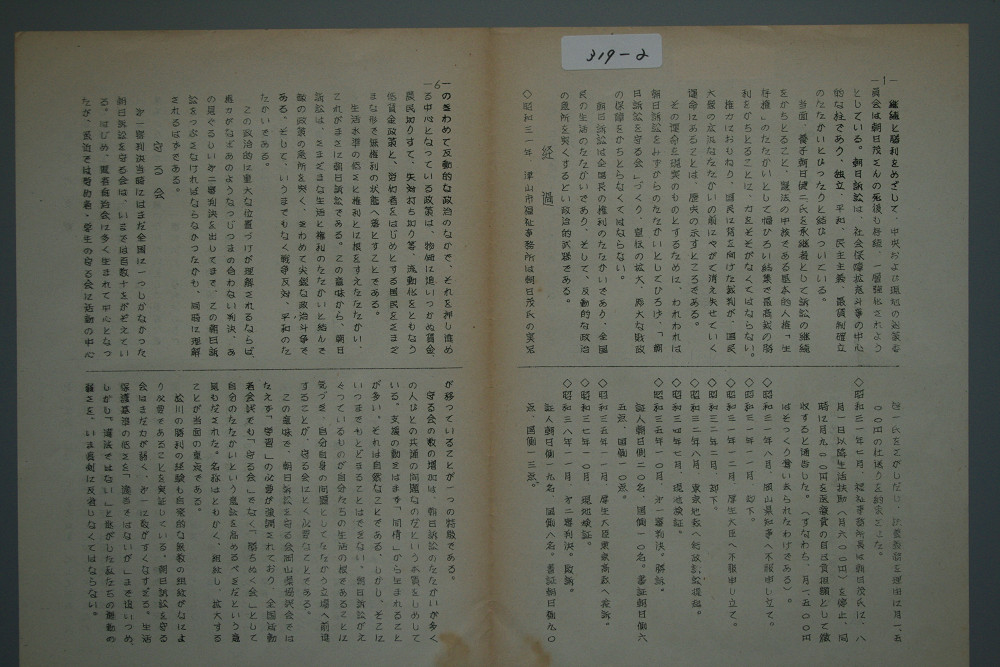 319-2
-1-
組織と勝利をめざして、中央および現地の対策委
員会は朝日茂さんの死後も存続、一層強化されよう
としている。朝日訴訟は、社会保障拡充斗争の中心
的な柱であり、独立、平和、民主主義、最賃制確立
のたたかいとぴったりと結びついている。
当面、養子朝日健二氏を承継者として訴訟の継続
をかちとること、憲法の中核である基本的人権「生
存権」のたたかいとして幅ひろい結集で最高裁の勝
利をかちとることに、力をそそがなくてはならない。
権力におもねり、国民に背を向けた裁判が、国民
大衆の広汎なたたかいの前にやがて消え失せていく
運命にあることは、歴史の示すところである。
その運命を現実のものとするために、われわれは
朝日訴訟をみずからのたたかいとしてひろげ、「朝
日訴訟を守る会」づくり、宣伝の拡大、厖大な財政
の保障をかちとらなくてはならない。
朝日訴訟は全国民の権利のたたかいであり、全国
民の生活のたたかいである。そして、反動的な政治
の急所を突くするどい政治的武器である。
経過
◇昭和三一年 津山市福祉事務所は朝日茂氏の実兄
敬一氏をさがしだし、扶養義務を理由に月一、五
〇〇円の仕送りを約束させた。
◇昭和三一年七月、福祉事務所長は朝日茂氏に、八
月一日以降生活扶助(八月六〇〇円)を停止、同
時に月九〇〇円を医療費の自己負担額として徴
収すると通告した。(すなわち、月一、五〇〇円
はそっくり奪いあられたわけである)。
◇昭和三一年八月、岡山県知事へ不服申し立て。
◇昭和三一年一一月、却下。
◇昭和三一年一二月、厚生大臣へ不服申し立て。
◇昭和三二年二月、却下。
◇昭和三二年八月、東京地裁へ行政訴訟提起。
◇昭和三四年七月、現地検証。
◇昭和三五年一〇月、才一審判決。勝訴。
証人朝日側二〇名、国側一〇名。書証朝日側六
五点、国側一〇点。
◇昭和三五年一一月、厚生大臣東京高裁へ控訴。
◇昭和三八年一〇月、現地検証。
◇昭和三八年一一月、才二審判決。敗訴。
証人朝日側一九名、国側八名。書証朝日側九〇
点、国側一三点。
-6-
のきわめて反動的な政治のなかで、それを押し進め
る中心となっている政策は、物価に追いつかぬ賃金、
農民切りすて、失対打ち切り等、流動化をともなう
低賃金政策と、労働者をはじめとする国民をさまざ
まな形で無権利の状態へ落とすことである。
生活水準の低さと権利とに根をすえたたたかい、
これがまさに朝日訴訟である。この意味から、朝日
訴訟は、さまざまな生活と権利のたたかいと結んで
敵の政策の急所を突く、きわめて尖鋭な政治斗争で
ある。そして、いうまでもなく戦争反対、平和のた
たかいである。
この政治的に重大な位置づけが理解されるならば、
誰かがなぜあのようなつじつまの合わない判決、あ
の見ぐるしい才二審判決を出してまで、この朝日訴
訟をつぶさなければならなかったかも、同時に理解
されるはずである。
守る会
才一審判決当時にはまだ全国に一つしかなかった
朝日訴訟を守る会は、いまでは百数十をかぞえてい
る。はじめ、患者自治会に多く生まれて中心となっ
たが、最近では労働者・学生の守る会に活動の中心
が移っていることが一つの特徴である。
守る会の数の増加は、朝日訴訟のたたかいが多く
の人びとの共通の問題なのだという本質をしめして
いる。支援の動機はまず「同情」から生まれること
が多い。それは自然なことである。しかし、そこに
いつまでもとどまることはできない。朝日訴訟がえ
がっているものが自分たちの生活の根であることに
気づき、自分自身の問題としてたたかう立場へ前進
することが、守る会にとく必要なことである。
この意味で、朝日訴訟を守る会岡山県協議会では
たえず「学習」の必要が強調されており、全国活動
者会議でも「守る会」でなく「勝ちぬく会」として
自分のたたかいという意識を高めるべきだという意
見もだされた。名称はともかく、組織し、拡大する
ことが当面の重点である。
松川の勝利の経験も自発的な無数の組織がなによ
り必要であることを実証している。朝日訴訟を守る
会はまだ力が弱く、才一に数がすくなすぎる。生活
保護基準の低さを「違法ではないが」まで追いつめ、
しかし「違法ではない」と逃がした私たちの運動の
弱さを、いま真剣に反省しなくてはならない。